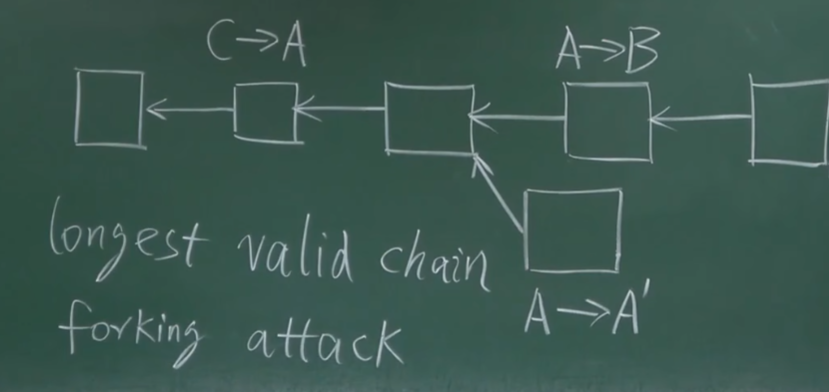 C→A
A→B
longest valid chain
A→A'
forking attack